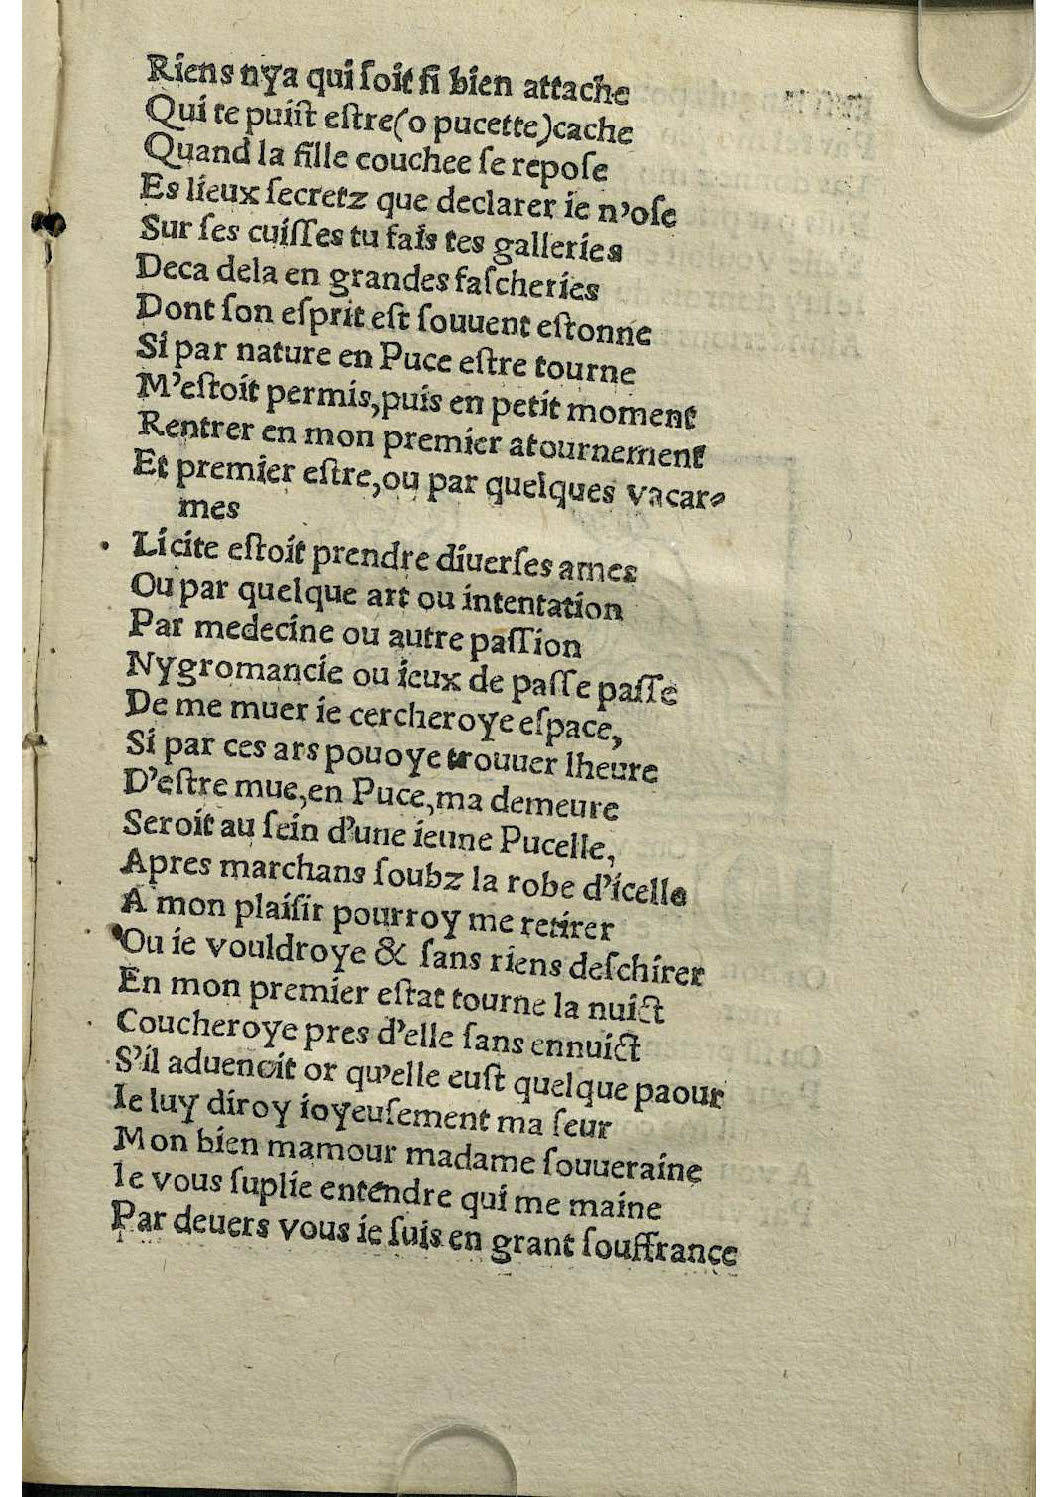 Riens nya qui ſoit ſi bien attache
Qui te puiſt eſtre(o pucette)cache
Quand la fille couchee ſe repoſe
Es lieux ſecretz que declarer ie n'oſe
Sur ſes cuiſſes tu fais tes galleries
Deca dela en grandes faſcheries
Dont ſon eſprit eſt ſouuent eſtonne
Si par nature en Puce eſtre tourne
M'eſtoit permis,puis en petit moment
Rentrer en mon premier atournement
Et premier eſtre,ou par quelques vacar-
mes
Licite eſtoit prendre diuerſes ames
Ou par quelque art ou intentation
Par medecine ou autre paſſion
Nygromancie ou ieux de paſſe paſſe
De me muer ie cercheroye eſpace,
Si par ces ars pouoye trouuer lheure
D'eſtre mue,en Puce,ma demeure
Seroit au ſein d'une ieune Pucelle,
Apres marchans ſoubz la robe d'icelle
A mon plaiſir pourroy me retirer
Ou ie vouldroye & ſans riens deſchirer
En mon premier eſtat tourne la nuict
Coucheroye pres d'elle ſans ennuict
S'il aduenoit or qu'elle euſt quelque paour
Ie luy diroy ioyeuſement ma ſeur
Mon bien mamour madame ſouueraine
Ie vous ſuplie entendre qui me maine
Par deuers vous ie ſuis en grant ſouffrance